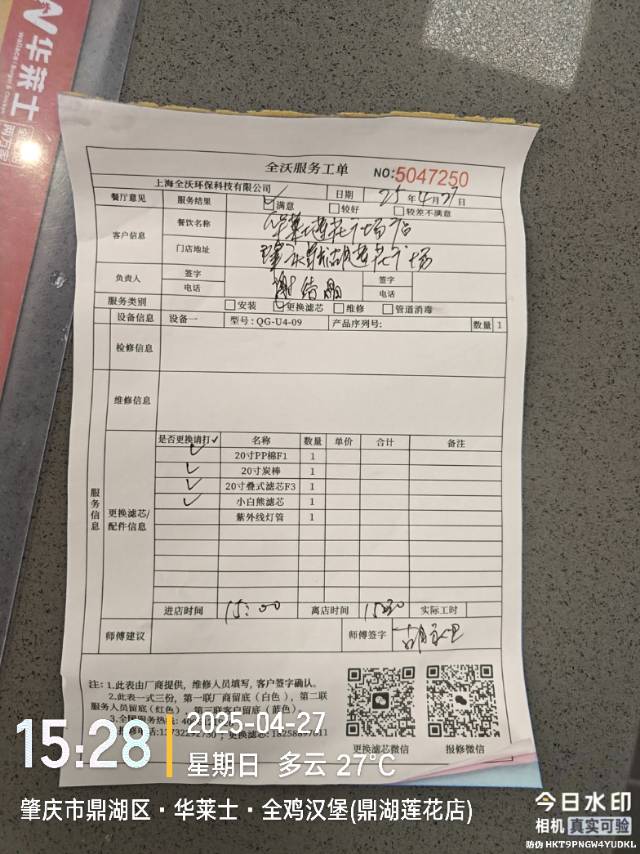 华莱士
全沃服务工单
NO:5047250
上海全沃环保科技有限公司
日期 25年4月27日
餐厅意见 服务结果 满意 较好 较差不满意
客户信息 餐饮名称 华莱士莲花广场店
门店地址 肇庆鼎湖莲花广场
负责人 签字 签字
电话 电话
服务类别 安装 更换滤芯 维修 管道消毒
设备信息 设备一 型号: QG-U4-09 产品序列号: 数量 1
检修信息
维修信息
服务信息
更换滤芯/配件信息
是否更换请打✓ 名称 数量 单价 合计 备注
✓ 20寸PP棉F1 1
✓ 20寸炭棒 1
✓ 20寸叠式滤芯F3 1
✓ 小白熊滤芯 1
紫外线灯管 1
进店时间 15:00 离店时间 15:30 实际工时
师傅建议 师傅签字
注:1.此表由厂商提供,维修人员填写,客户签字确认。
2.此表一式三份,第一联厂商留底(白色),第二联
服务人员留底(红色),第三联客户留底(蓝色)。
3.全国服务热线:
更换滤芯微信 报修微信
15:28
2025-04-27
星期日 多云 27°C
肇庆市鼎湖区·华莱士·全鸡汉堡(鼎湖莲花店)
今日水印
相机 真实可验
防伪 HKT9PNGW4YUDKL